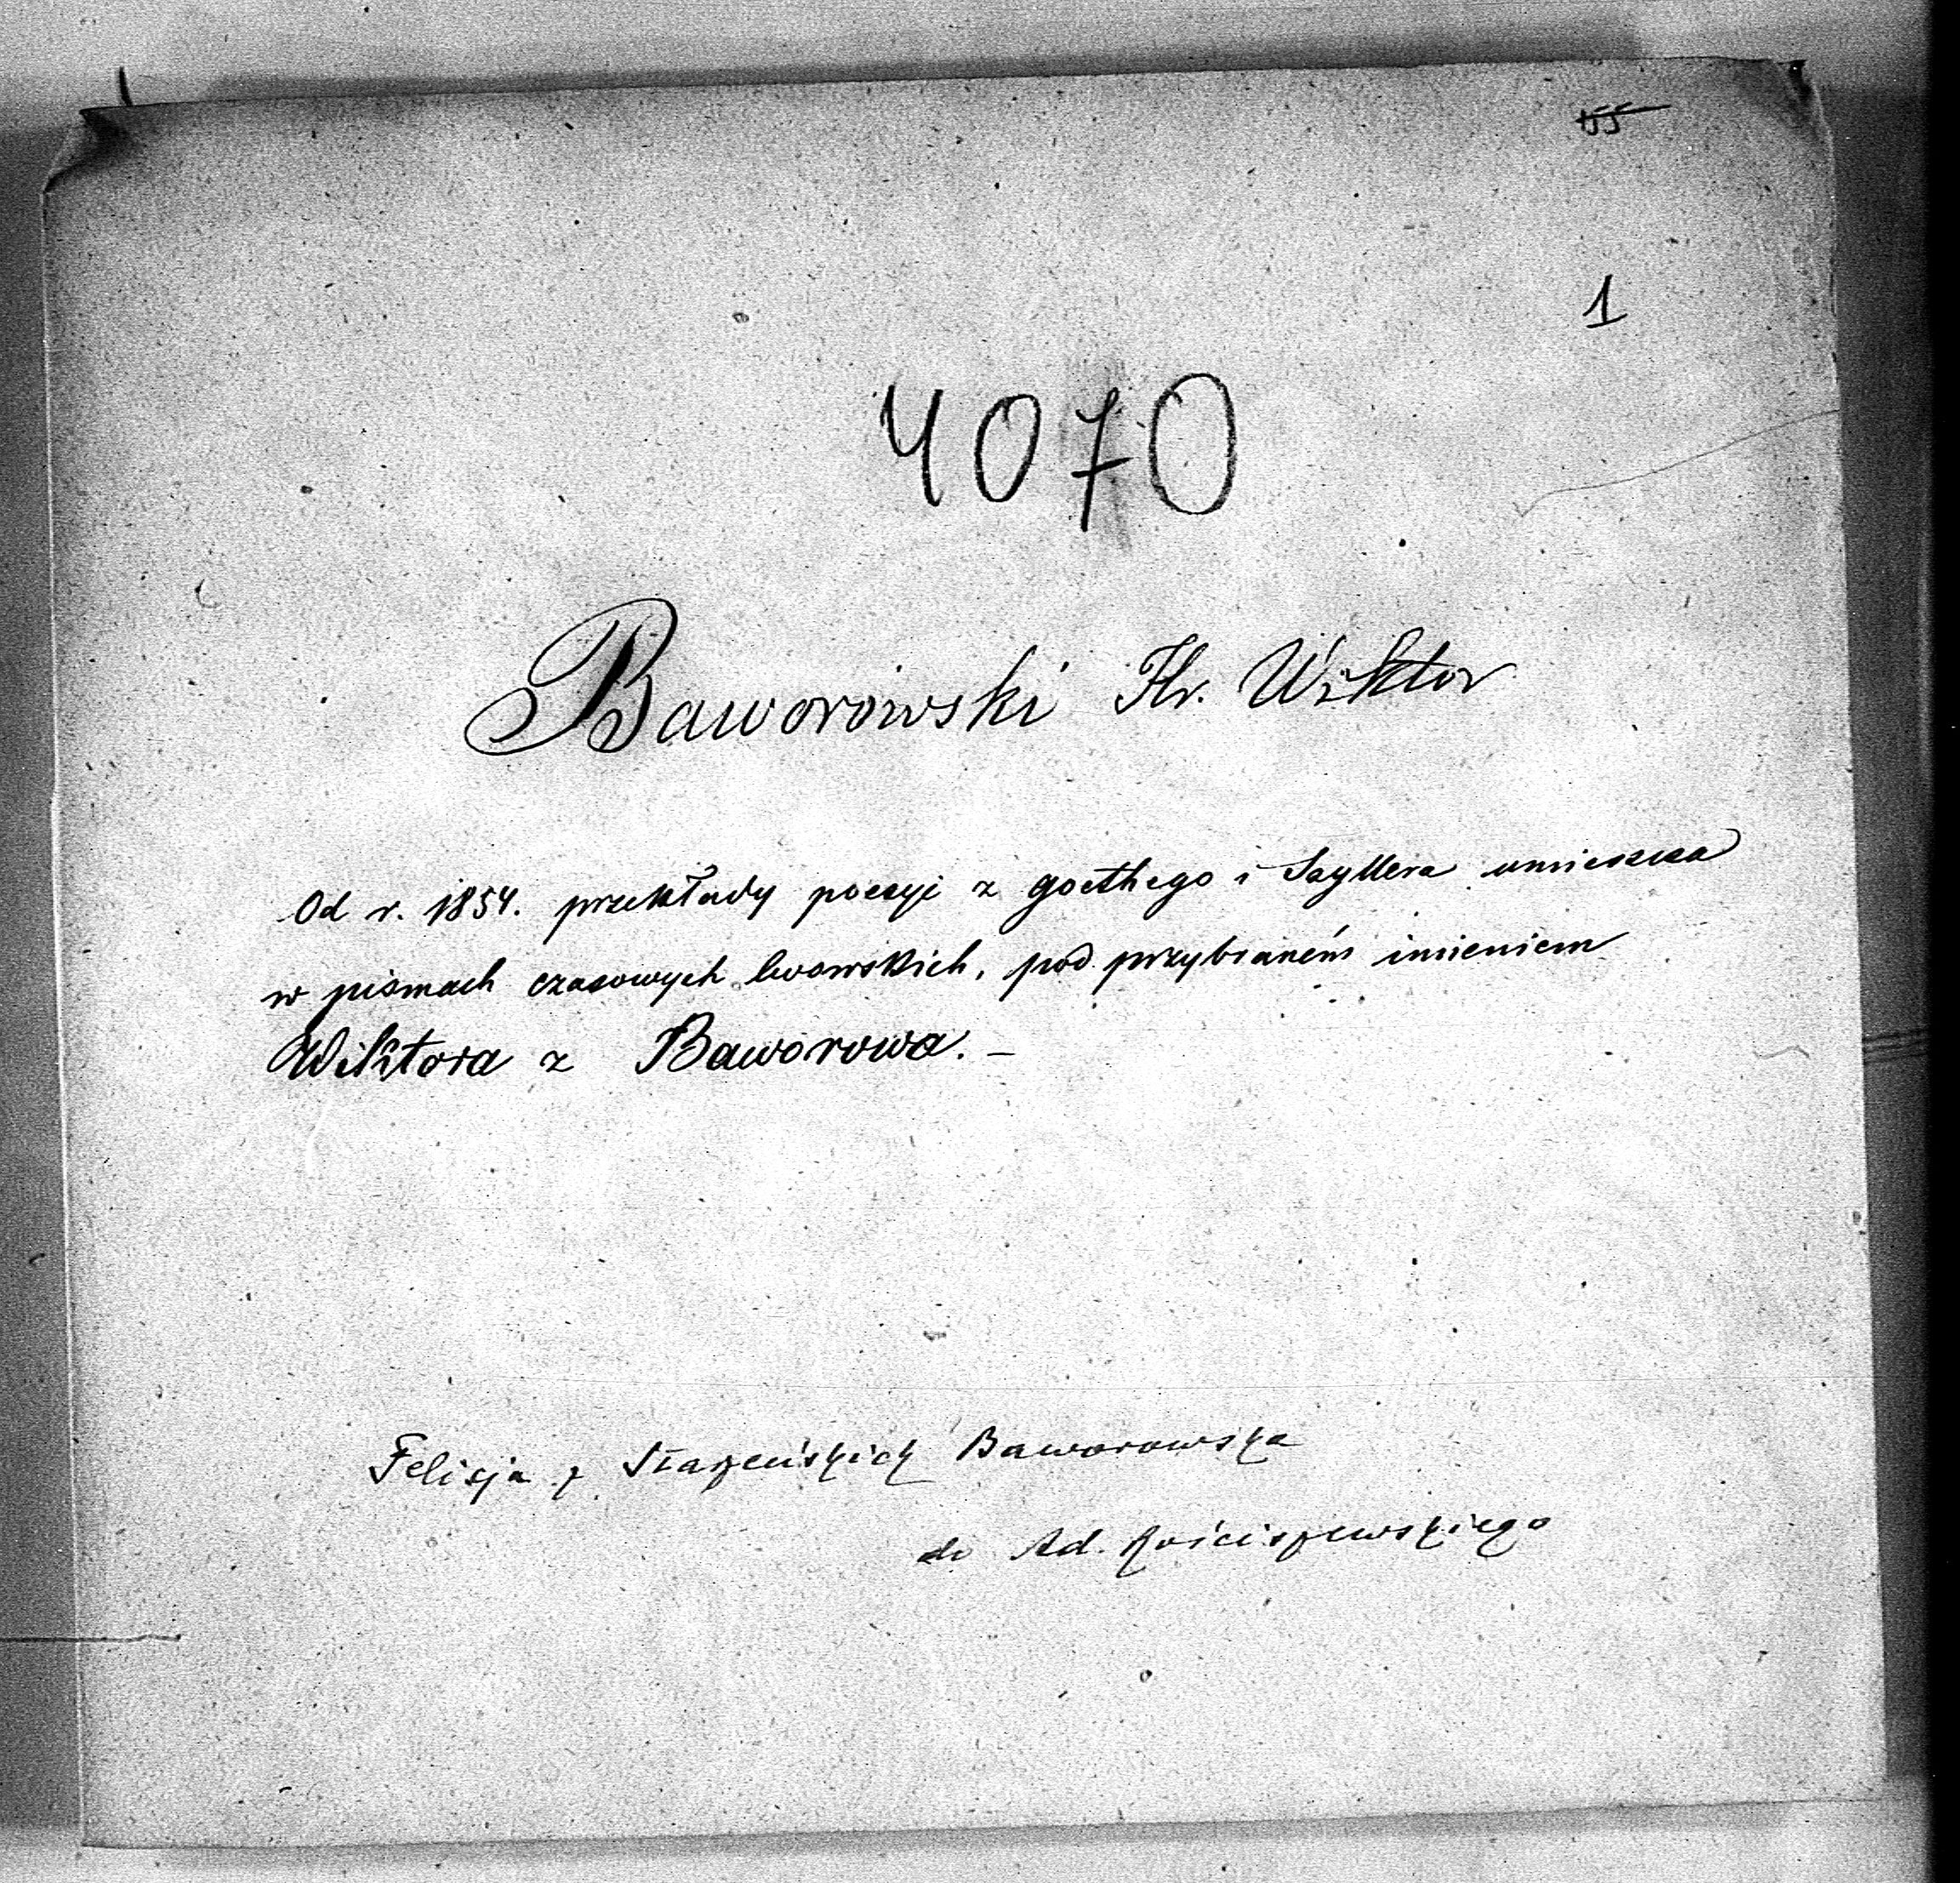 55
1
4070
Baworowski Hr. Wiktor
Od r. 1854. przekłady poezyi z goethego i Szyllera umieszcza
w pismach czasowych lwowskich, pod przybraném imieniem
Wiktora z Baworowa. –
Felicja z Starzeńskich Baworowska
do Ad. Rościszewskiego